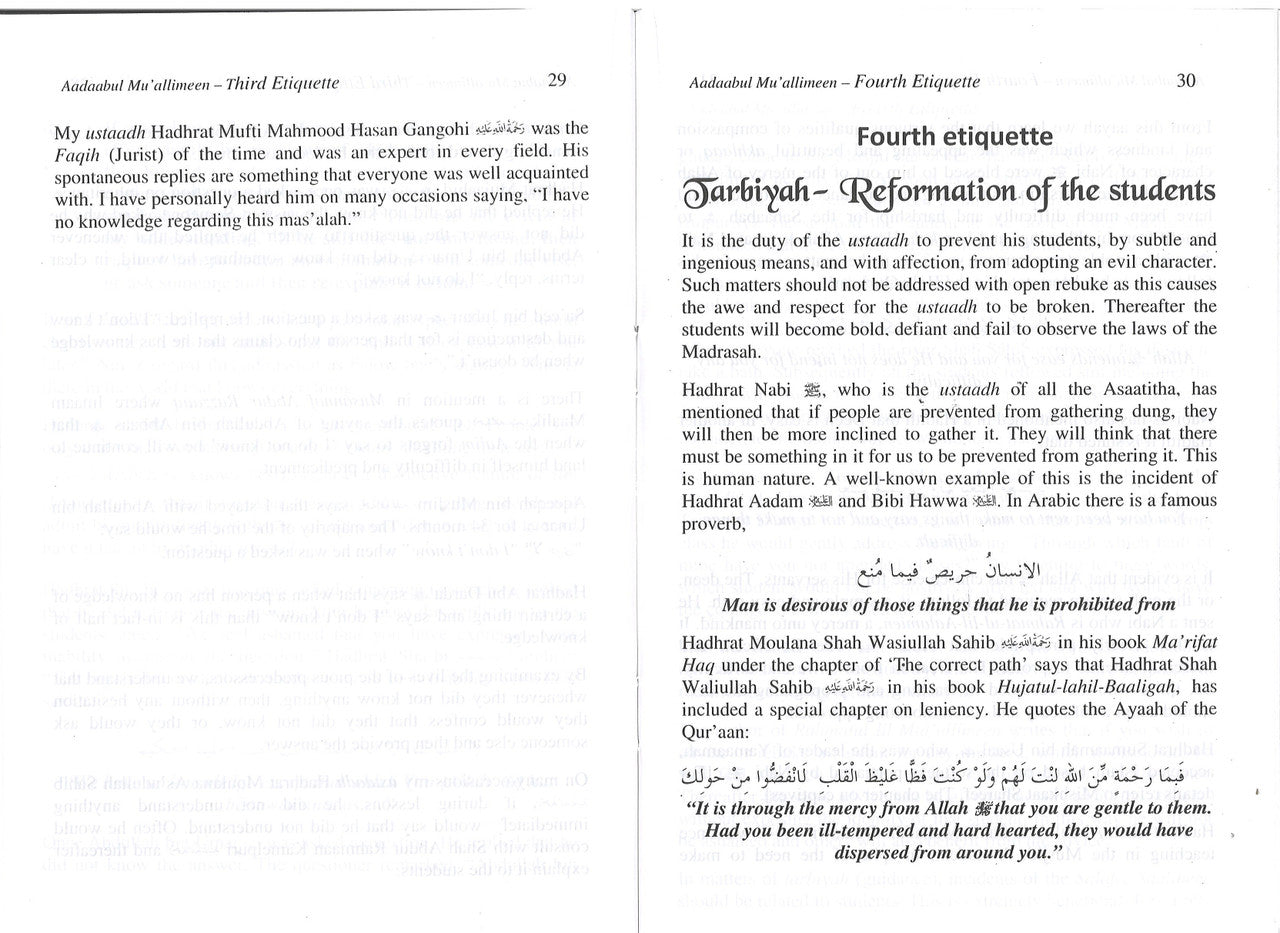 Aadaabul Mu’allimeen – Third Etiquette 29
My ustaadh Hadhrat Mufti Mahmood Hasan Gangohi رحمة الله عليه was the
Faqih (Jurist) of the time and was an expert in every field. His
spontaneous replies are something that everyone was well acquainted
with. I have personally heard him on many occasions saying, “I have
no knowledge regarding this mas’alah.”
Aadaabul Mu’allimeen – Fourth Etiquette 30
Fourth etiquette
Tarbiyah- Reformation of the students
It is the duty of the ustaadh to prevent his students, by subtle and
ingenious means, and with affection, from adopting an evil character.
Such matters should not be addressed with open rebuke as this causes
the awe and respect for the ustaadh to be broken. Thereafter the
students will become bold, defiant and fail to observe the laws of the
Madrasah.
Hadhrat Nabi ﷺ, who is the ustaadh of all the Asaatitha, has
mentioned that if people are prevented from gathering dung, they
will then be more inclined to gather it. They will think that there
must be something in it for us to be prevented from gathering it. This
is human nature. A well-known example of this is the incident of
Hadhrat Aadam and Bibi Hawwa. In Arabic there is a famous
proverb,
الانسانُ حريصٌ فيما مُنع
Man is desirous of those things that he is prohibited from
Hadhrat Moulana Shah Wasiullah Sahib رحمة الله عليه in his book Ma’rifat
Haq under the chapter of ‘The correct path’ says that Hadhrat Shah
Waliullah Sahib رحمة الله عليه in his book Hujatul-lahil-Baaligah, has
included a special chapter on leniency. He quotes the Ayaah of the
Qur’aan:
فَبِمَا رَحْمَةٍ مِّنَ اللهِ لِنْتَ لَهُمْ وَلَوْ كُنْتَ فَظًّا غَلِيْظَ الْقَلْبِ لَانْفَضُّوا مِنْ حَوْلِكَ
“It is through the mercy from Allah ﷻ that you are gentle to them.
Had you been ill-tempered and hard hearted, they would have
dispersed from around you.”